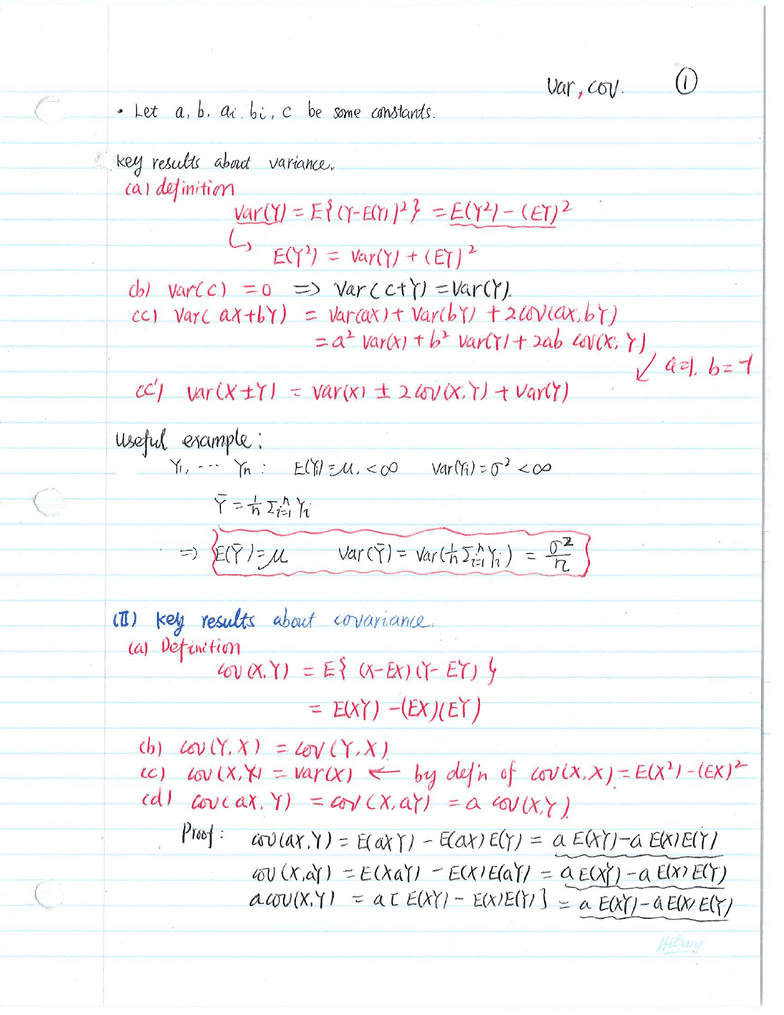 Var, cov. ①
· Let a, b, ai, bi, c be some constants.
key results about variance.
(a) definition
Var(Y) = E{(Y-E(Y))²} = E(Y²) - (EY)²
↳ E(Y²) = Var(Y) + (EY)²
(b) Var(c) = 0 ⇒ Var(c+Y) = Var(Y).
(c) Var(aX+bY) = Var(aX) + Var(bY) + 2cov(aX, bY)
= a² Var(X) + b² Var(Y) + 2ab cov(X, Y)
↙ a=1, b=-1
(c') Var(X±Y) = Var(X) ± 2cov(X,Y) + Var(Y)
Useful example:
Y₁, ... Yn: E(Yi)=μ, <∞ Var(Yi)=σ² <∞
Ȳ = 1/n Σⁿᵢ₌₁ Yi
⇒ E(Ȳ)=μ Var(Ȳ) = Var(1/n Σⁿᵢ₌₁ Yi) = σ²/n
(II) key results about covariance.
(a) Definition
cov(X,Y) = E{ (X-EX)(Y-EY) }
= E(XY) - (EX)(EY)
(b) cov(Y,X) = cov(Y,X)
(c) cov(X,X) = Var(X) ← by def'n of cov(X,X) = E(X²) - (EX)²
(d) cov(aX, Y) = cov(X,aY) = a cov(X,Y).
Proof: cov(aX,Y) = E(aXY) - E(aX)E(Y) = a E(XY) - a E(X)E(Y)
cov(X,aY) = E(XaY) - E(X)E(aY) = a E(XY) - a E(X)E(Y)
a cov(X,Y) = a[ E(XY) - E(X)E(Y) ] = a E(XY) - a E(X)E(Y)